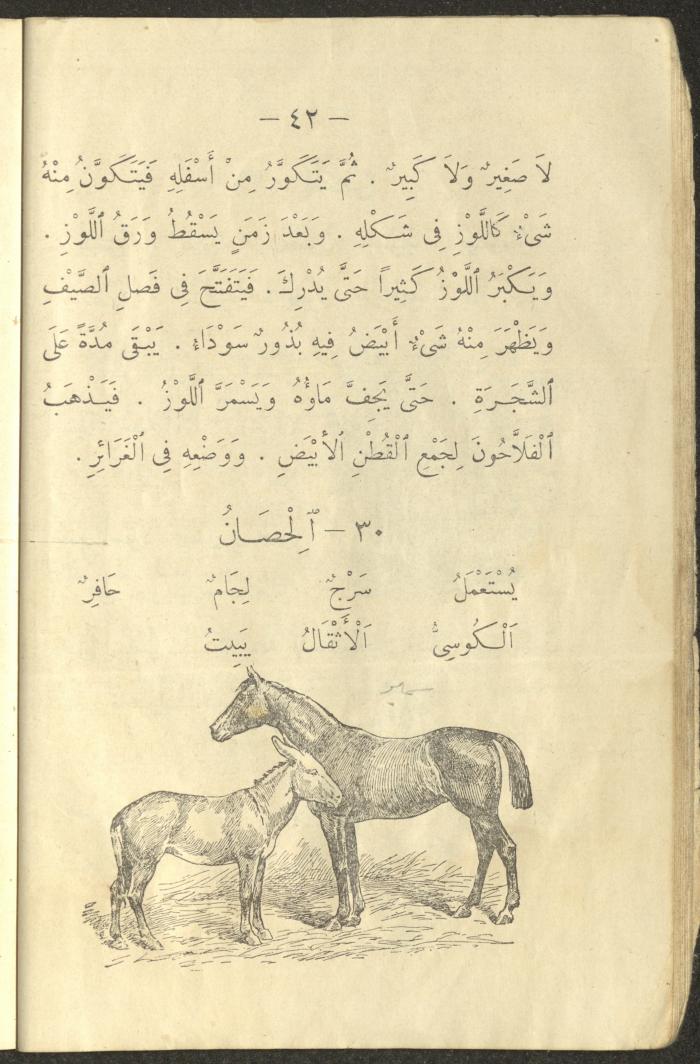 — ٤٢ —
لاَ صَغِيرٌ وَلاَ كَبِيرٌ . ثُمَّ يَتَكَوَّرُ مِنْ أَسْفَلِهِ فَيَتَكَوَّنُ مِنْهُ
شَيْءٌ كَاللَّوْزِ فِى شَكْلِهِ . وَبَعْدَ زَمَنٍ يَسْقُطُ وَرَقُ اللَّوْزِ .
وَيَكْبَرُ اللَّوْزُ كَثِيراً حَتَّى يُدْرِكَ . فَيَتَفَتَّحَ فِى فَصْلِ الصَّيْفِ
وَيَظْهَرَ مِنْهُ شَيْءٌ أَبْيَضُ فِيهِ بُذُورٌ سَوْدَاءُ . يَبْقَى مُدَّةً عَلَى
الشَّجَرَةِ . حَتَّى يَجِفَّ مَاؤُهُ وَيَسْمَرَّ اللَّوْزُ . فَيَذْهَبُ
الْفَلاَّحُونَ لِجَمْعِ الْقُطْنِ الأَبْيَضِ . وَوَضْعِهِ فِى الْغَرَائِرِ .
٣٠ — اَلْحِصَانُ
يُسْتَعْمَلُ سَرْجٌ لِجَامٌ حَافِرٌ
اَلْكُوسِىُّ اَلْأَثْقَالُ يَبِيتُ